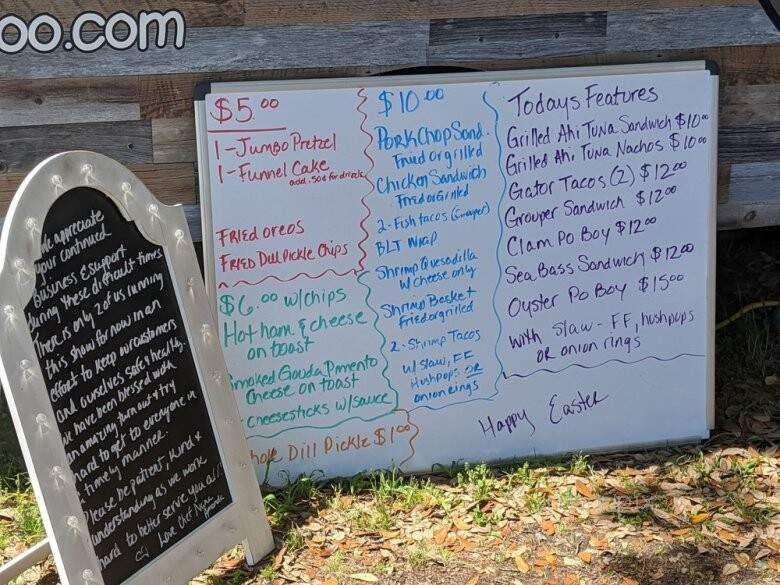 oo.com
$5.00
1-Jumbo Pretzel
1-Funnel Cake
add .50¢ for drizzle
Fried oreos
Fried Dull Pickle Chips
$6.00 w/chips
Hot ham & cheese
on toast
Smoked Gouda Pimento
Cheese on toast
cheesesticks w/sauce
hole Dill Pickle $1.00
$10.00
Pork Chop Sand.
Fried or grilled
Chicken Sandwich
Fried or Grilled
2-Fish tacos (Grouper)
BLT Wrap
Shrimp Quesadilla
w cheese only
Shrimp Basket
Fried or grilled
2-Shrimp Tacos
w/ slaw, FF
Hushpups OR
onion rings
Todays Features
Grilled Ahi Tuna Sandwich $10.00
Grilled Ahi Tuna Nachos $10.00
Gator Tacos (2) $12.00
Grouper Sandwich $12.00
Clam Po Boy $12.00
Sea Bass Sandwich $12.00
Oyster Po Boy $15.00
with slaw - FF, hushpups
OR onion rings
Happy Easter
We appreciate
your continued
Business & Support
during these difficult times.
There is only 2 of us running
this show for now in an
effort to keep our customers
and ourselves safe & healthy.
we have been blessed with
an amazing turn out & try
hard to get to everyone in
a timely manner.
Please be patient, kind &
understanding as we work
hard to better serve you all
Love Chef